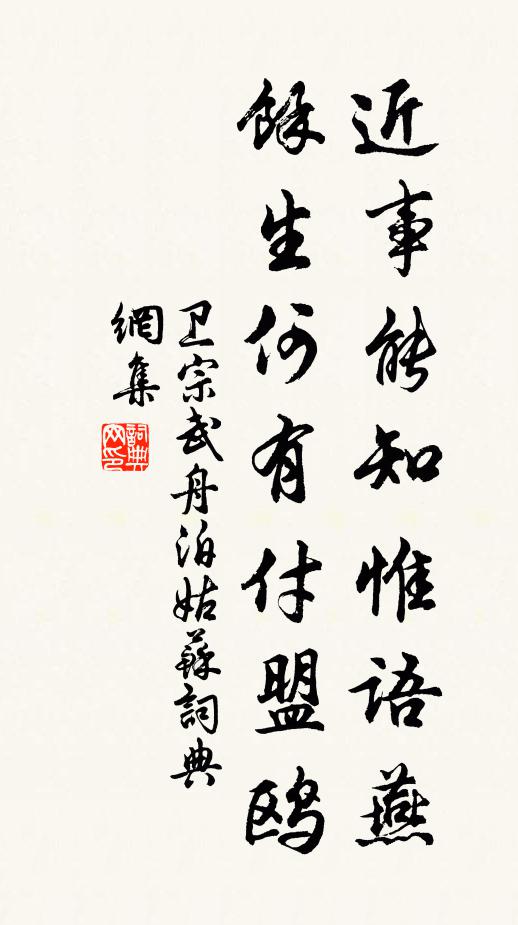 近事能知惟语燕
餘生何有付盟鸥
卫宗武舟泊姑蘇詞典
網集
詞典
网印